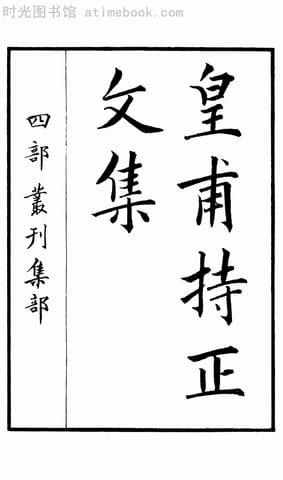 时光图书馆 - atimebook.com
皇甫持正
文集
四部叢刊集部